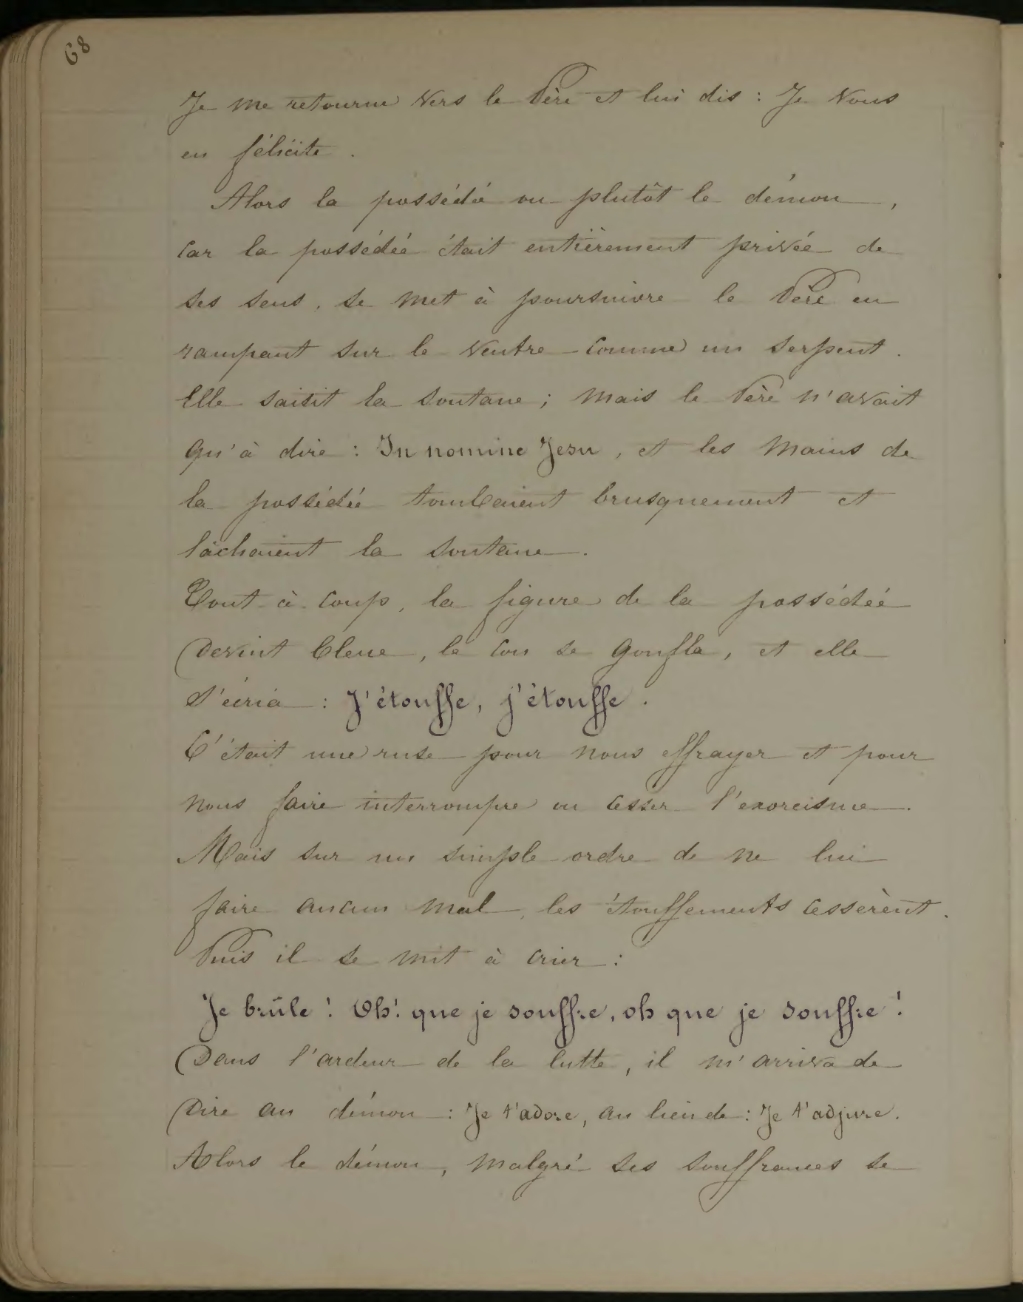 68
Je me retourne vers le Père et lui dis : Je vous
en félicite .
Alors la possédée ou plutôt le démon ,
car la possédée était entièrement privée de
ses sens , se met à poursuivre le Père en
rampant sur le ventre comme un serpent .
Elle saisit la soutane ; mais le Père n'avait
qu'à dire : In nomine Jesu , et les mains de
la possédée tombaient brusquement et
lâchaient la soutane .
Tout-à-coup , la figure de la possédée
devint bleue , le cou se gonfla , et elle
s'écria : J'étouffe , j'étouffe .
C'était une ruse pour nous effrayer et pour
nous faire interrompre ou cesser l'exorcisme .
Mais sur un simple ordre de ne lui
faire aucun mal , les étouffements cessèrent .
Puis il se mit à crier :
Je brûle ! Oh ! que je souffre , oh que je souffre !
Dans l'ardeur de la lutte , il m'arriva de
dire au démon : Je t'adore , au lieu de : Je t'adjure .
Alors le démon , malgré ses souffrances se